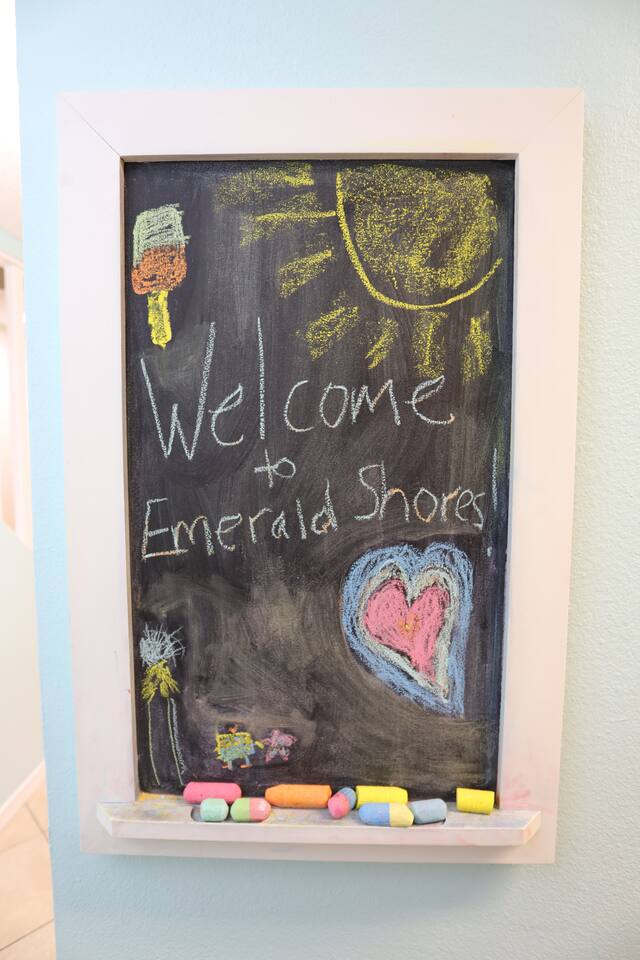 Welcome
to
Emerald Shores!